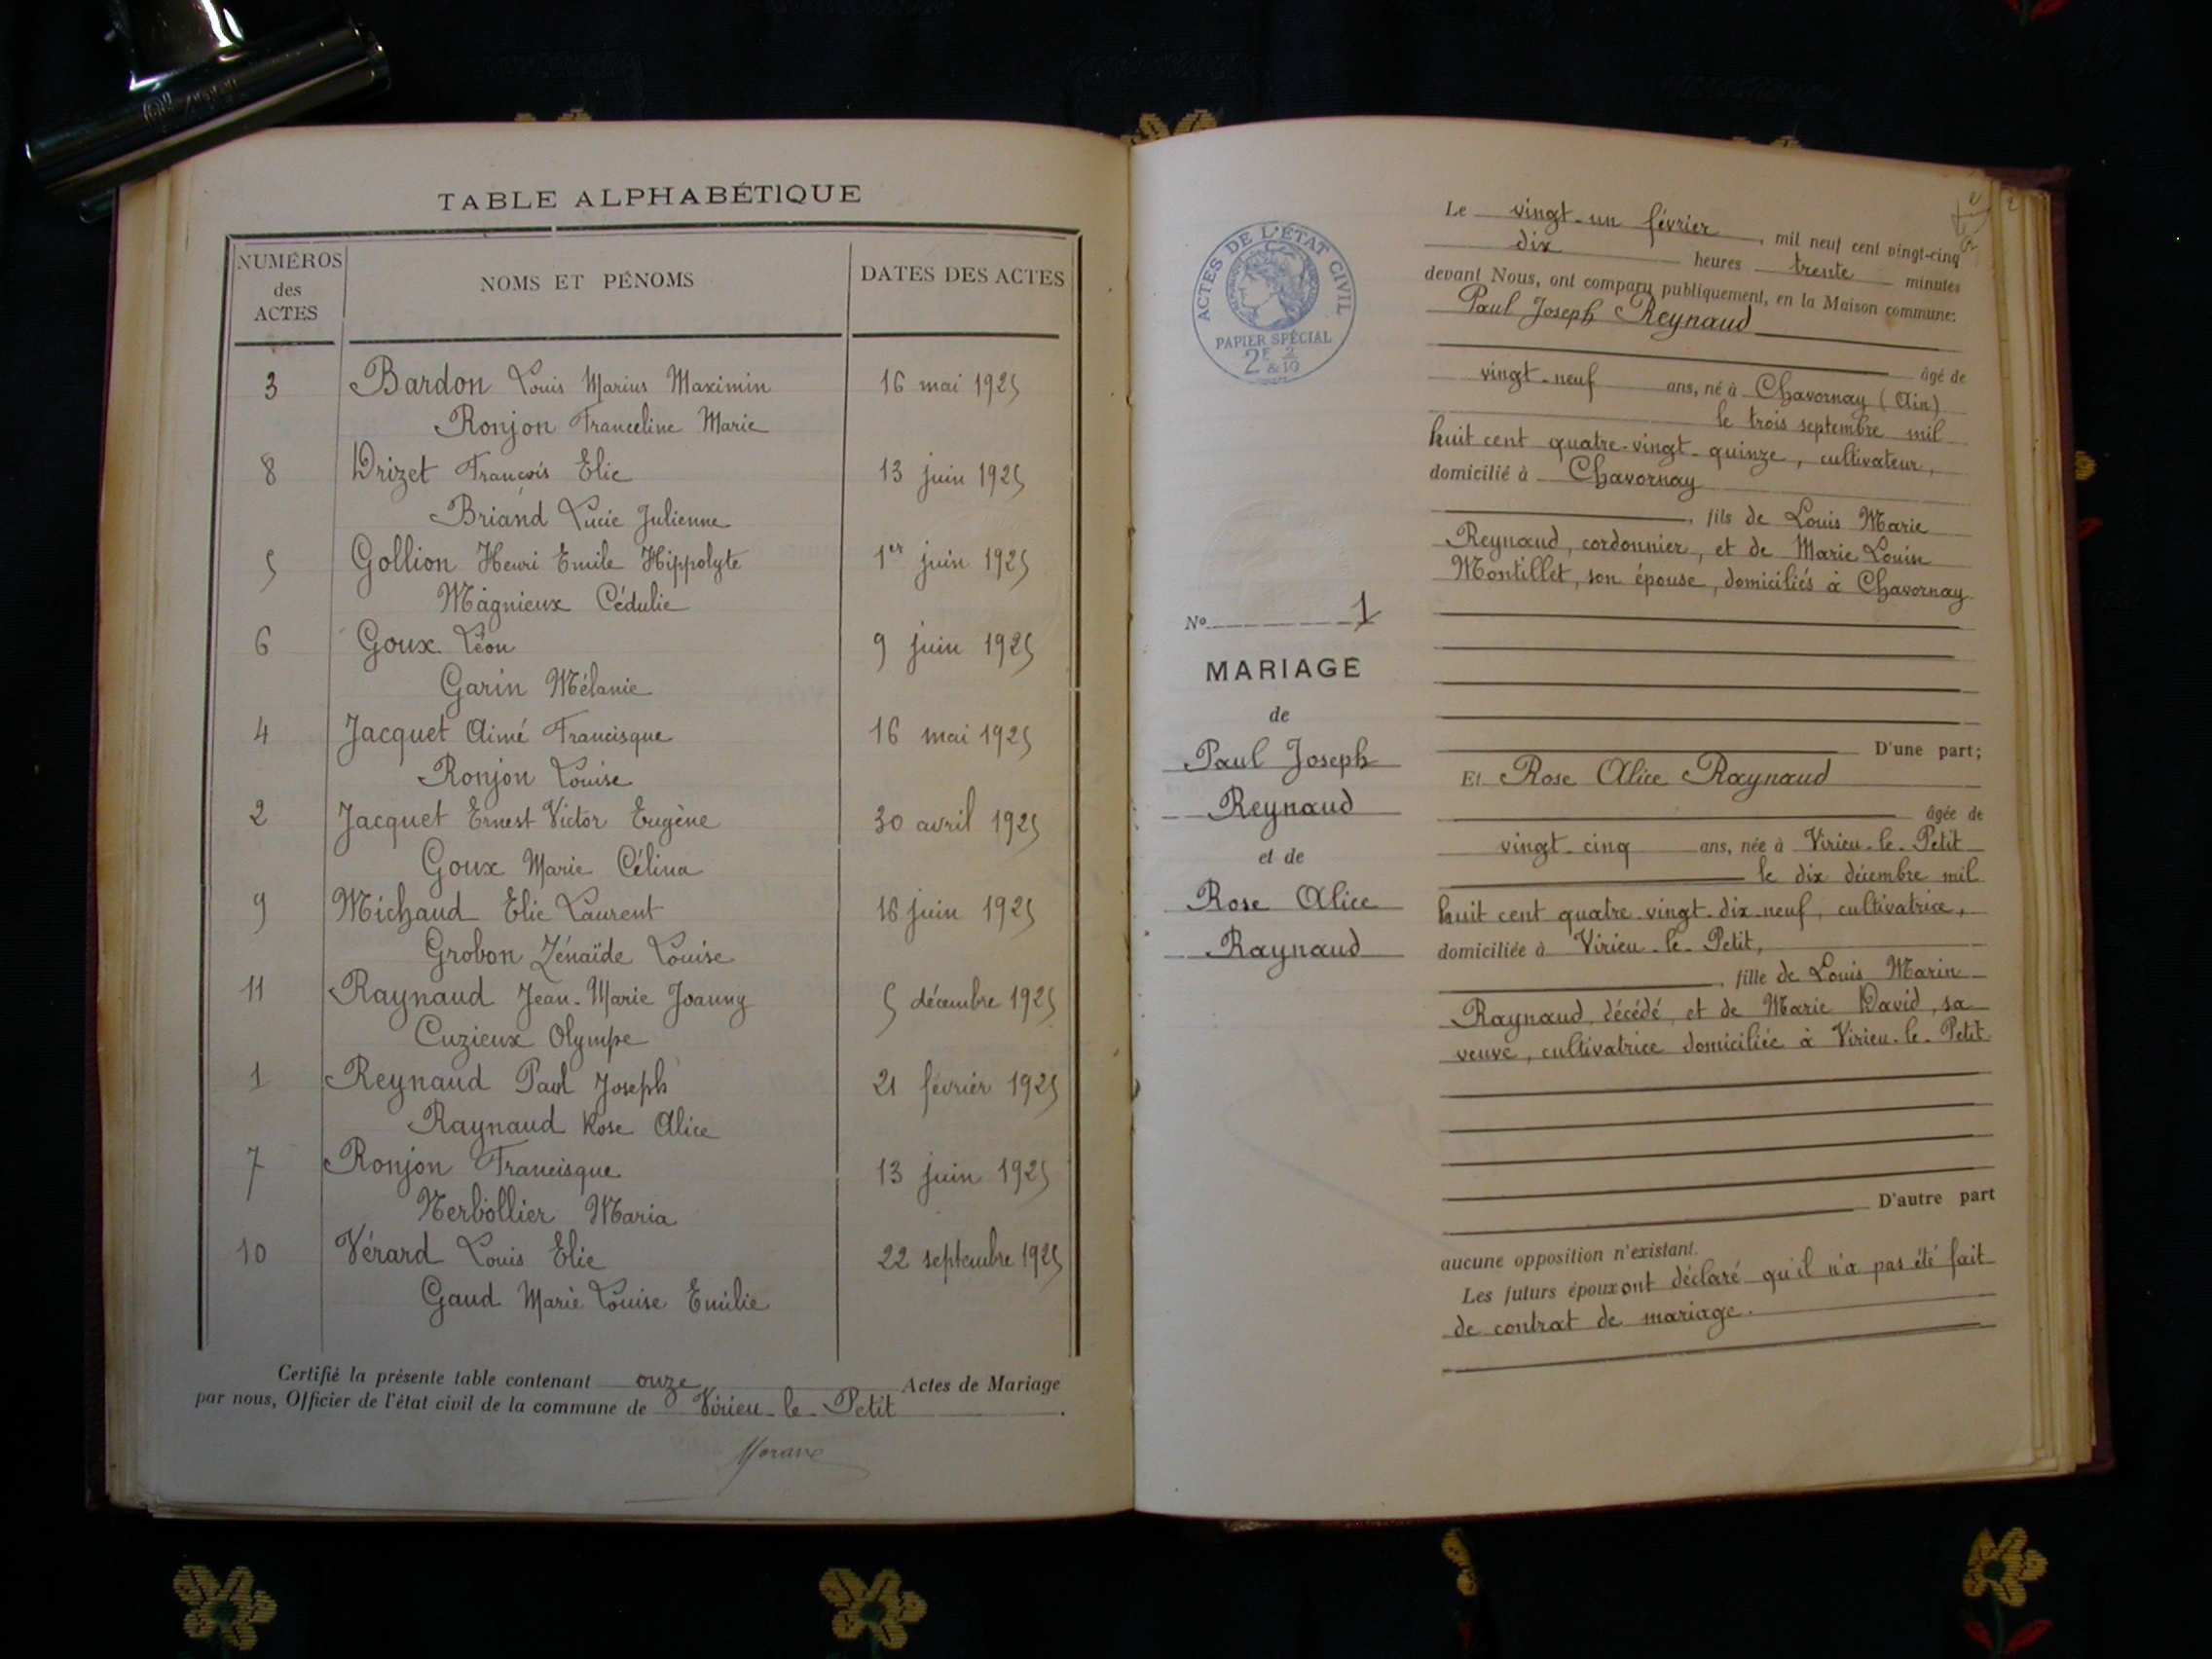 TABLE ALPHABÉTIQUE
NUMÉROS des ACTES
NOMS ET PÉNOMS
DATES DES ACTES
3 Bardon Louis Marius Maximin 16 mai 1925
Ronjon Franceline Marie
8 Drizet François Elie 13 juin 1925
Briand Lucie Julienne
5 Gollion Henri Emile Hippolyte 1er juin 1925
Magnieux Cédulie
6 Goux Léon 9 juin 1925
Garin Mélanie
4 Jacquet Aimé Francisque 16 mai 1925
Ronjon Louise
2 Jacquet Ernest Victor Eugène 30 avril 1925
Goux Marie Célina
9 Michaud Elie Laurent 16 juin 1925
Grobon Zénaïde Louise
11 Raynaud Jean-Marie Joanny 5 décembre 1925
Cuzieux Olympe
1 Reynaud Paul Joseph 21 février 1925
Raynaud Rose Alice
7 Ronjon Francisque 13 juin 1925
Nerbollier Maria
10 Vérard Louis Elie 22 septembre 1925
Gaud Marie Louise Emilie
Certifié la présente table contenant onze Actes de Mariage
par nous, Officier de l'état civil de la commune de Virieu-le-Petit.
ACTES DE L'ÉTAT CIVIL
PAPIER SPÉCIAL
2F & 2/10
No 1
MARIAGE
de
Paul Joseph
Reynaud
et de
Rose Alice
Raynaud
2
Le vingt-un février, mil neuf cent vingt-cinq
dix heures trente minutes
devant Nous, ont comparu publiquement, en la Maison commune:
Paul Joseph Reynaud
âgé de
vingt-neuf ans, né à Chavornay (Ain)
le trois septembre mil
huit cent quatre-vingt-quinze, cultivateur,
domicilié à Chavornay
, fils de Louis Marie
Reynaud, cordonnier, et de Marie Louise
Montillet, son épouse, domiciliés à Chavornay
D'une part;
Et Rose Alice Raynaud
âgée de
vingt-cinq ans, née à Virieu-le-Petit
le dix décembre mil
huit cent quatre-vingt-dix-neuf, cultivatrice,
domiciliée à Virieu-le-Petit,
, fille de Louis Marin
Raynaud, décédé, et de Marie David, sa
veuve, cultivatrice domiciliée à Virieu-le-Petit
D'autre part
aucune opposition n'existant.
Les futurs époux ont déclaré qu'il n'a pas été fait
de contrat de mariage.